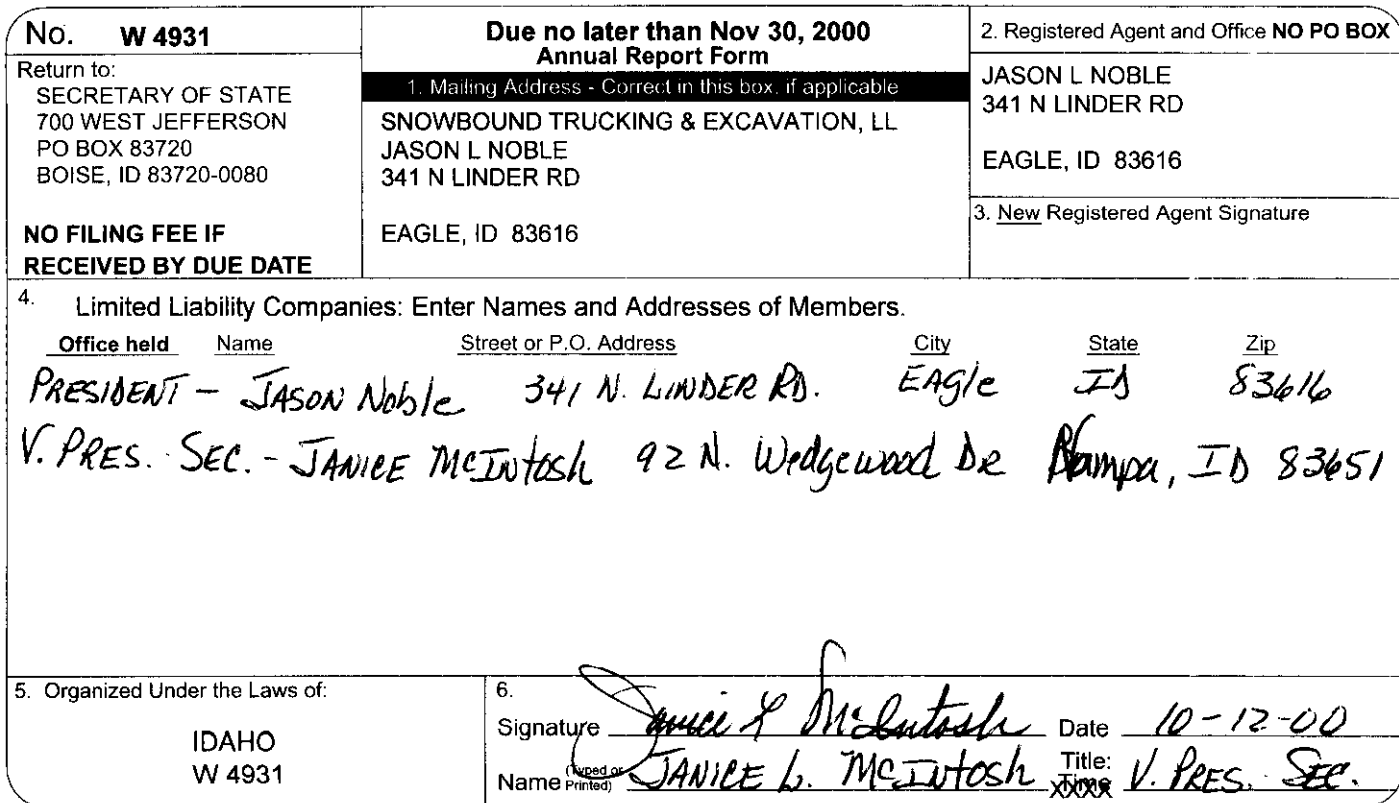 No. W 4931
Return to:
SECRETARY OF STATE
700 WEST JEFFERSON
PO BOX 83720
BOISE, ID 83720-0080
NO FILING FEE IF
RECEIVED BY DUE DATE
Due no later than Nov 30, 2000
Annual Report Form
1. Mailing Address - Correct in this box, if applicable
SNOWBOUND TRUCKING & EXCAVATION, LL
JASON L NOBLE
341 N LINDER RD
EAGLE, ID 83616
2. Registered Agent and Office NO PO BOX
JASON L NOBLE
341 N LINDER RD
EAGLE, ID 83616
3. New Registered Agent Signature
4. Limited Liability Companies: Enter Names and Addresses of Members.
Office held Name Street or P.O. Address City State Zip
PRESIDENT - JASON Noble 341 N. LINDER RD. EAgle ID 83616
V. PRES. SEC. - JANICE McINtosh 92 N. Wedgewood DR Nampa, ID 83651
5. Organized Under the Laws of:
IDAHO
W 4931
6.
Signature Janice L McIntosh Date 10-12-00
Name (Typed or Printed) JANICE L. McINtosh Title: V. PRES. SEC.